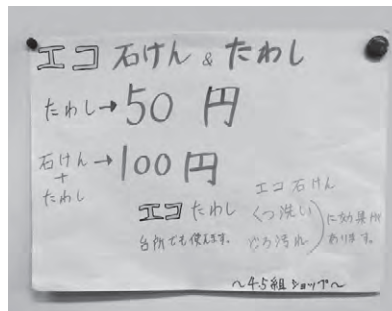 エコ 石けん & たわし
たわし→50 円
石けん
+
たわし
→100円
エコ たわし
台所でも使えます。
エコ石けん
くつ洗い
どろ汚れ
に効果が
あります。
～4.5組ショップ～